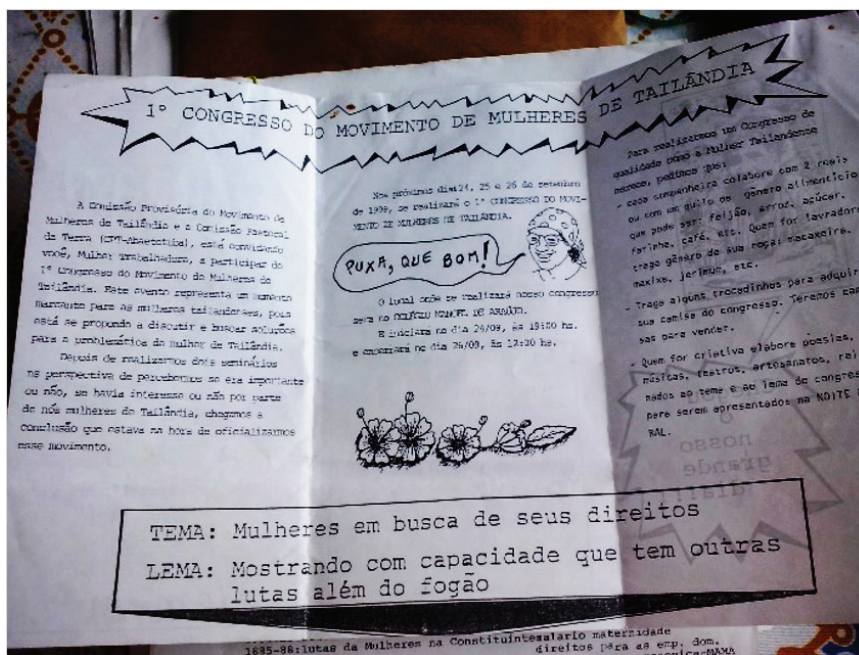 1º CONGRESSO DO MOVIMENTO DE MULHERES DE TAILÂNDIA
A Comissão Provisória do Movimento de
Mulheres de Tailândia e a Comissão Pastoral
da Terra (CPT-Abaetetuba), está convidando
você, Mulher Trabalhadora, a participar do
1º Congresso do Movimento de Mulheres de
Tailândia. Este evento representa um momento
marcante para as mulheres tailandenses, pois
está se propondo a discutir e buscar soluções
para a problemática da mulher de Tailândia.
Depois de realizarmos dois seminários
na perspectiva de percebermos se era importante
ou não, se havia interesse ou não por parte
de nós mulheres de Tailândia, chegamos a
conclusão que estava na hora de oficializarmos
esse movimento.
Nos próximos dias 24, 25 e 26 de setembro
de 1999, se realizará o 1º CONGRESSO DO MOVI-
MENTO DE MULHERES DE TAILÂNDIA.
PUXA, QUE BOM!
O local onde se realizará nosso congresso
será no COLÉGIO MANOEL DE ARAÚJO.
E iniciará no dia 24/09, às 19:00 hs.
e encerrará no dia 26/09, às 12:00 hs.
Para realizarmos um Congresso de
qualidade como a Mulher Tailandense
merece, pedimos que:
- cada companheira colabore com 2 reais
ou com um quilo de gênero alimentício
que pode ser: feijão, arroz, açúcar,
farinha, café, etc. Quem for lavradora
traga gênero de sua roça: macaxeira,
maxixe, jerimum, etc.
- Traga alguns trocadinhos para adquir
sua camisa do congresso. Teremos cam
sas para vender.
- Quem for criativa elabore poesias,
músicas, teatros, artesanatos, rel
nados ao tema e ao lema do congres
para serem apresentados na NOITE
RAL.
nosso
grande
TEMA: Mulheres em busca de seus direitos
LEMA: Mostrando com capacidade que tem outras
lutas além do fogão
1885-88:lutas da Mulheres na Constituinte salario maternidade
direitos para as emp. dom.